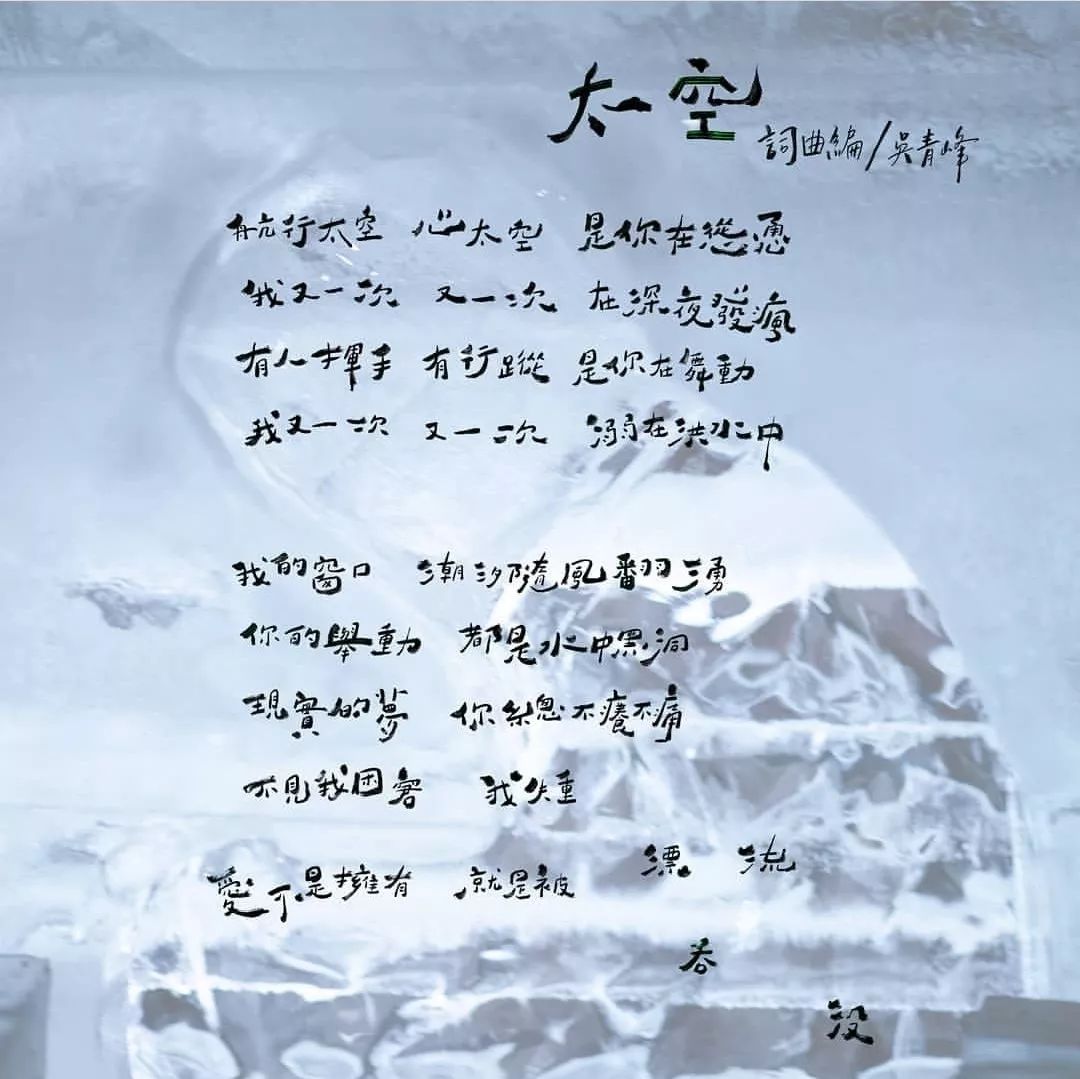 太空
詞曲編/吳青峰
航行太空 心太空 是你在慫慂
我又一次 又一次 在深夜發瘋
有人揮手 有行蹤 是你在舞動
我又一次 又一次 溺在洪水中
我的窗口 潮汐隨風翻湧
你的舉動 都是水中黑洞
現實的夢 你總不癢不痛
不見我困窘 我失重
漂 流
愛不是擁有 就是被
吞
沒